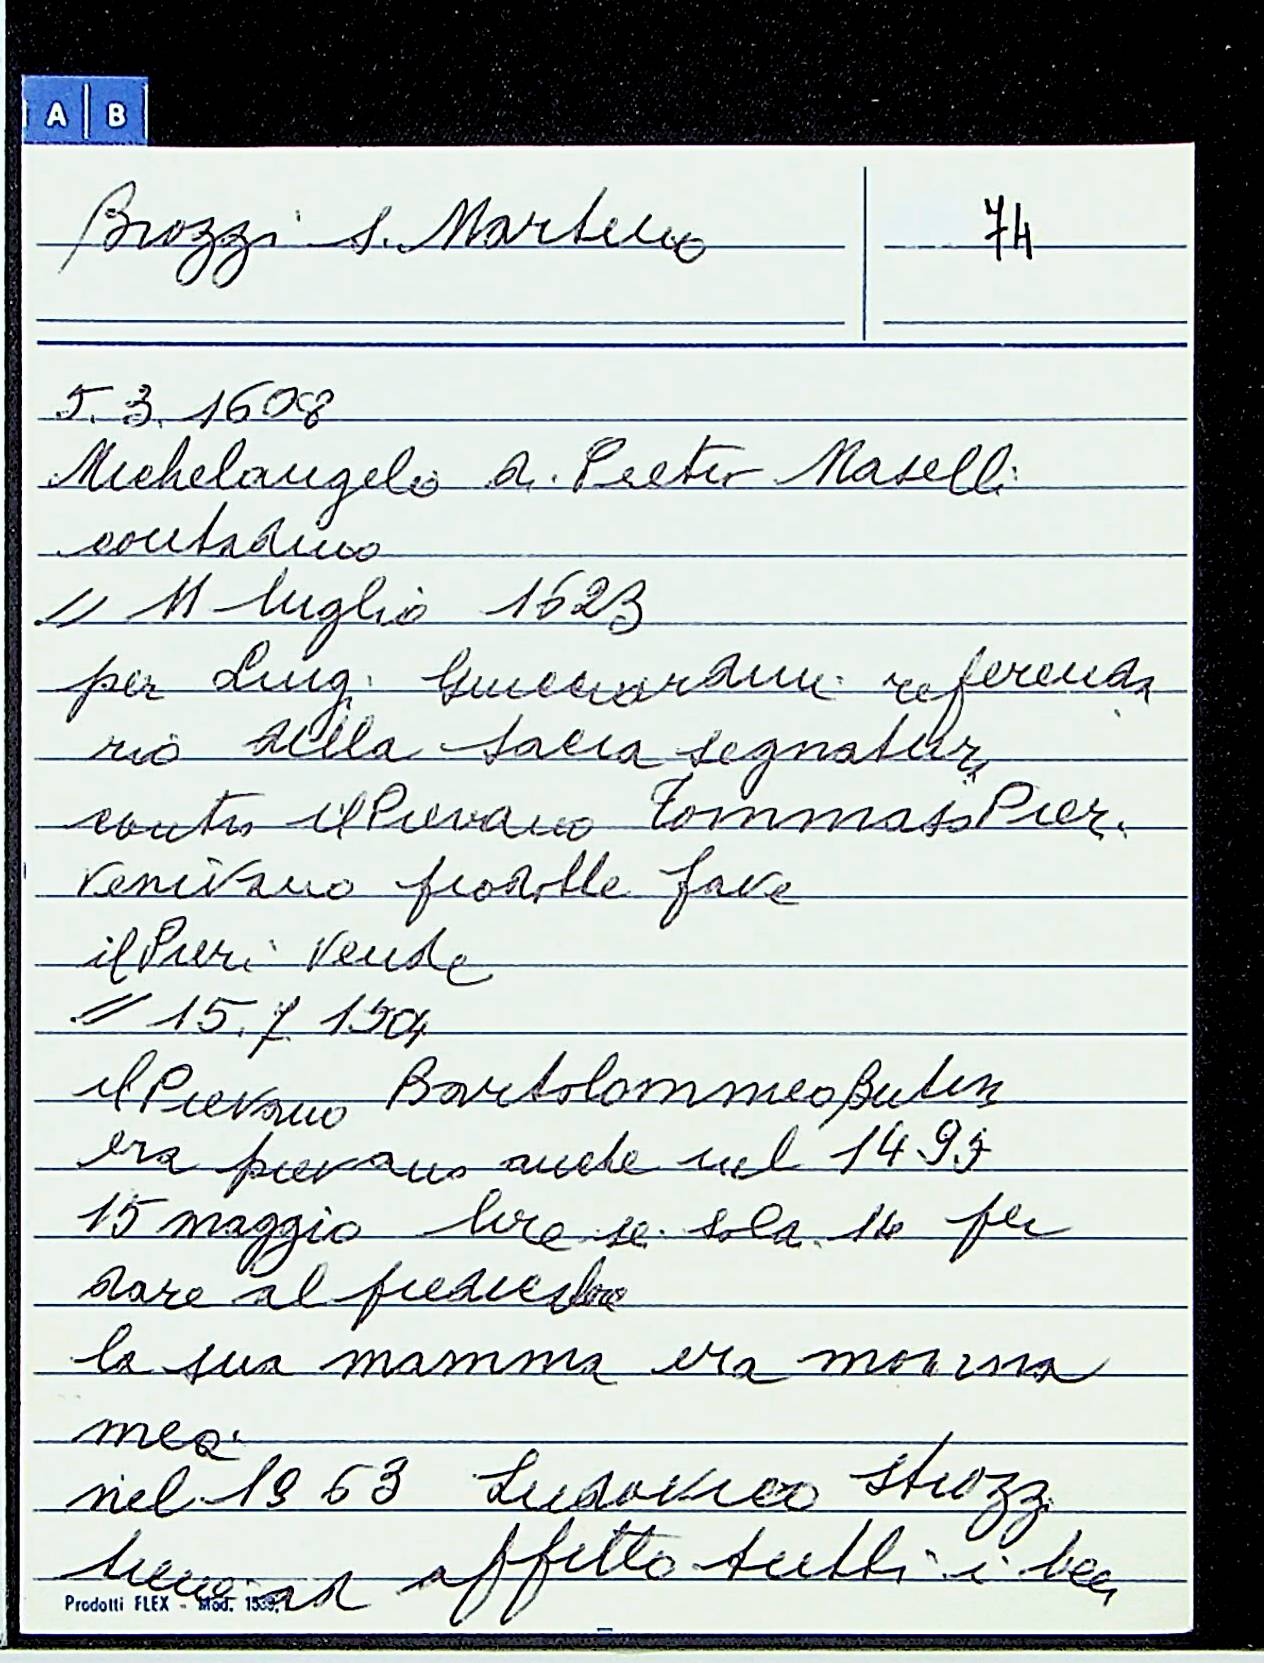 A B
Brozzi S. Martino
74
5.3.1608
Michelangelo di Pietro Maselli
contadino
// 11 luglio 1623
per Luigi Guicciardini referenda
rio della sacra segnatura
contro il Pievano Tommaso Pieri
venivano prodotte fave
il Pieri vende
// 15.7
il Pievano Bartolommeo
era pievano anche nel 1495
15 maggio lire sei soldi 14 per
dare al predicatore
la sua mamma era monna
mea
nel 1963 Ludovico Strozzi
ad affitto tutti i beni
Prodotti FLEX - Mod. 1539